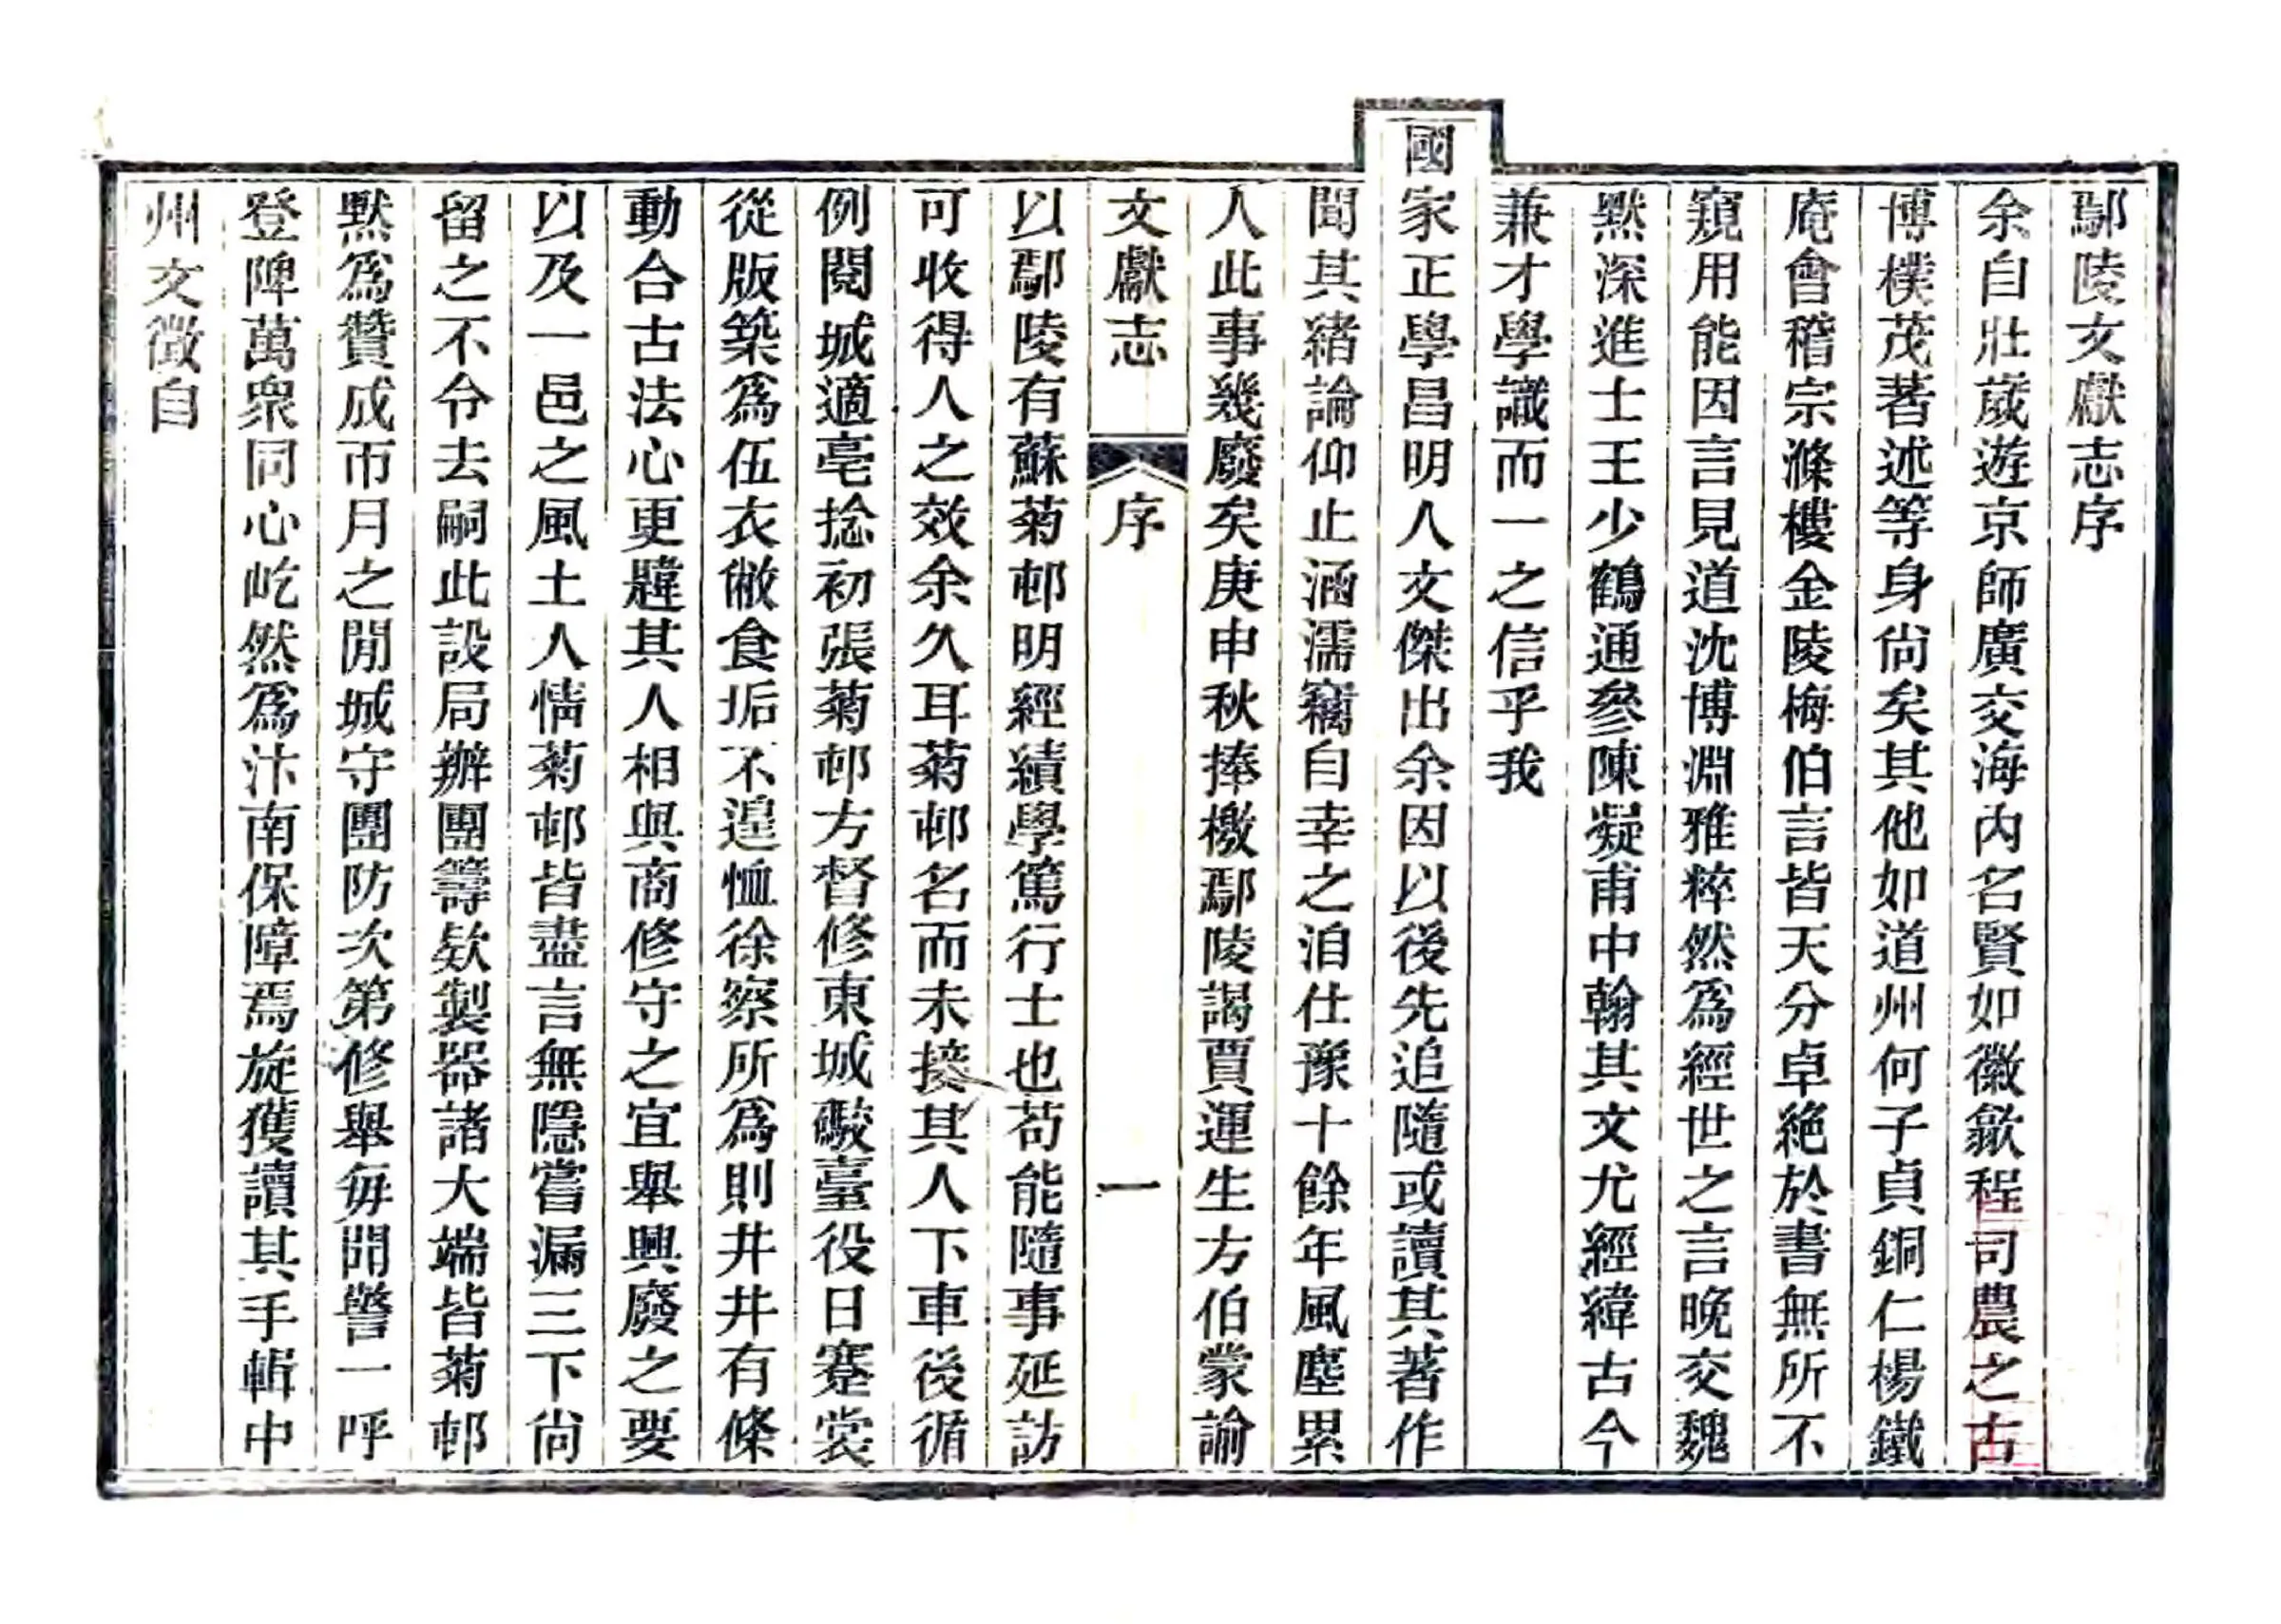 鄢陵文獻志序
余自壯歲遊京師廣交海內名賢如徽歙程司農之古
博樸茂著述等身尙矣其他如道州何子貞銅仁楊鐵
庵會稽宗滌樓金陵梅伯言皆天分卓絶於書無所不
窺用能因言見道沈博淵雅粹然爲經世之言晚交魏
默深進士王少鶴通參陳凝甫中翰其文尤經緯古今
兼才學識而一之信乎我
國家正學昌明人文傑出余因以後先追隨或讀其著作
聞其緒論仰止涵濡竊自幸之洎仕豫十餘年風塵累
人此事幾廢矣庚申秋捧檄鄢陵謁賈運生方伯蒙諭
文獻志 序 一
以鄢陵有蘇菊邨明經績學篤行士也苟能隨事延訪
可收得人之效余久耳菊邨名而未接其人下車後循
例閱城適亳捻初張菊邨方督修東城礮臺役日蹇裳
從版築爲伍衣敝食垢不遑恤徐察所爲則井井有條
動合古法心更韙其人相與商修守之宜舉興廢之要
以及一邑之風土人情菊邨皆盡言無隱嘗漏三下尙
留之不令去嗣此設局辦團籌欵製器諸大端皆菊邨
默爲贊成帀月之閒城守團防次第修舉每聞警一呼
登陴萬衆同心屹然爲汴南保障焉旋獲讀其手輯中
州文徵自